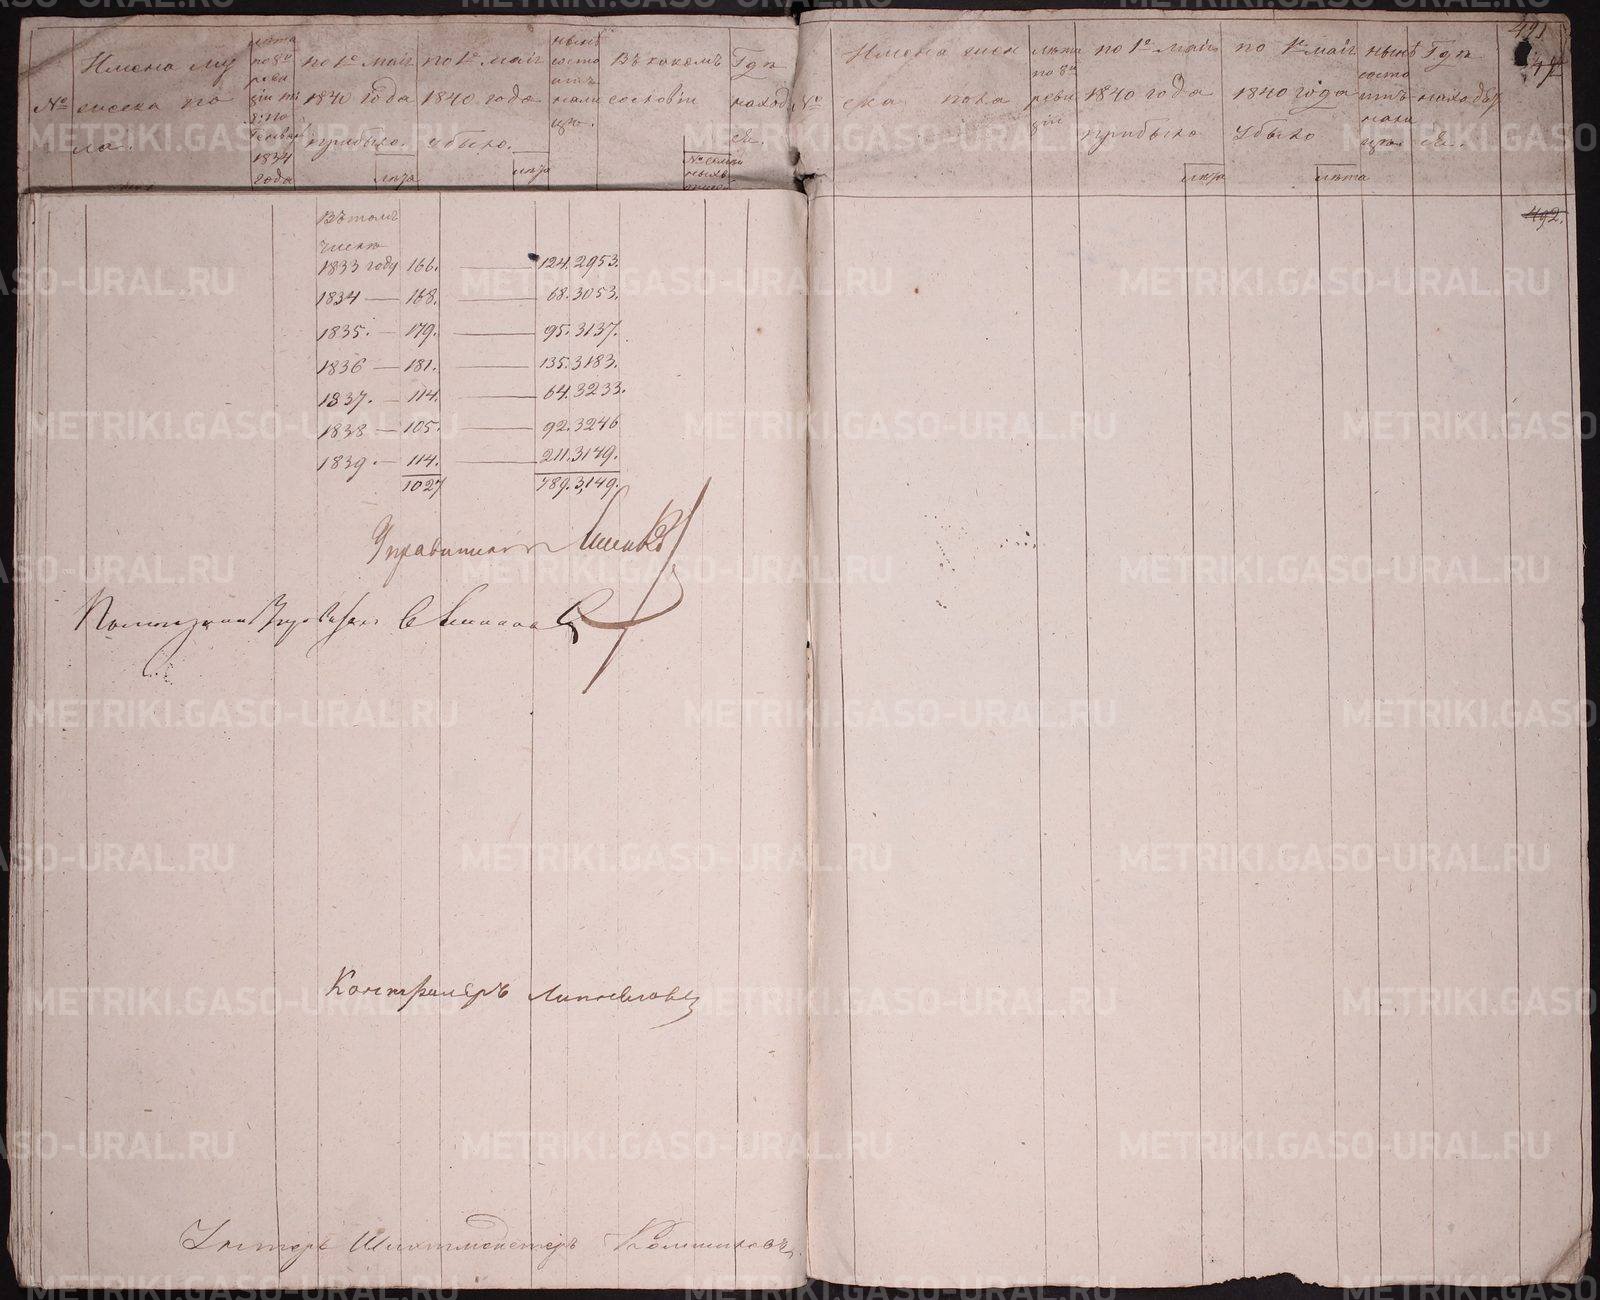 №
Имена му
жеска по
ла.
лѣта
по 8й
реви
зіи
1834
года
по 1е маія
1840 года
прибыло.
лѣта
по 1е маія
1840 года
убыло.
лѣта
нынѣ
состо
итъ
нали
цо.
Въ какомъ
сословіи
Гдѣ
наход
ся.
№
Имена жен
ска пола
лѣта
по 8й
реви
зіи
по 1е маія
1840 года
прибыло
лѣта
по 1е маія
1840 года
убыло
лѣта
нынѣ
состо
итъ
нали
цо
Гдѣ
находят
ся.
491
492.
Въ томъ
числѣ
1833 году 166. — 124. 2953.
1834 — 168. — 68. 3053.
1835. — 179. — 95. 3137.
1836 — 181. — 135. 3183.
1837. — 114. — 64. 3233.
1838 — 105. — 92. 3246
1839. — 114. — 211. 3149.
1027 789. 3,149.
Управитель
Контролеръ
Унтеръ Шихтмейстеръ
METRIKI.GASO-URAL.RU